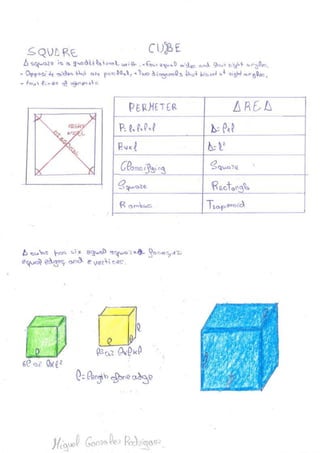 SQUARE
CUBE
A square is a quadrilateral with - Four equal sides and four right angles.
- Opposite sides that are parallel. - Two diagonals that bisect at right angles.
- four lines of
RIGHT
ANGEL
DIAGONAL
PERIMETER
AREA
P. l+l+l+l
A= l×l
P=4×l
A= l²
Classifying
Square
Square
Rectangle
Rombus
Trapezoid
A cube has six equal square faces, 12
equal edges, and 8 vertices.
6l² or 6×l²
l
l³ or l×l×l
l = length of one edge
Miguel Gonzales Rodríguez